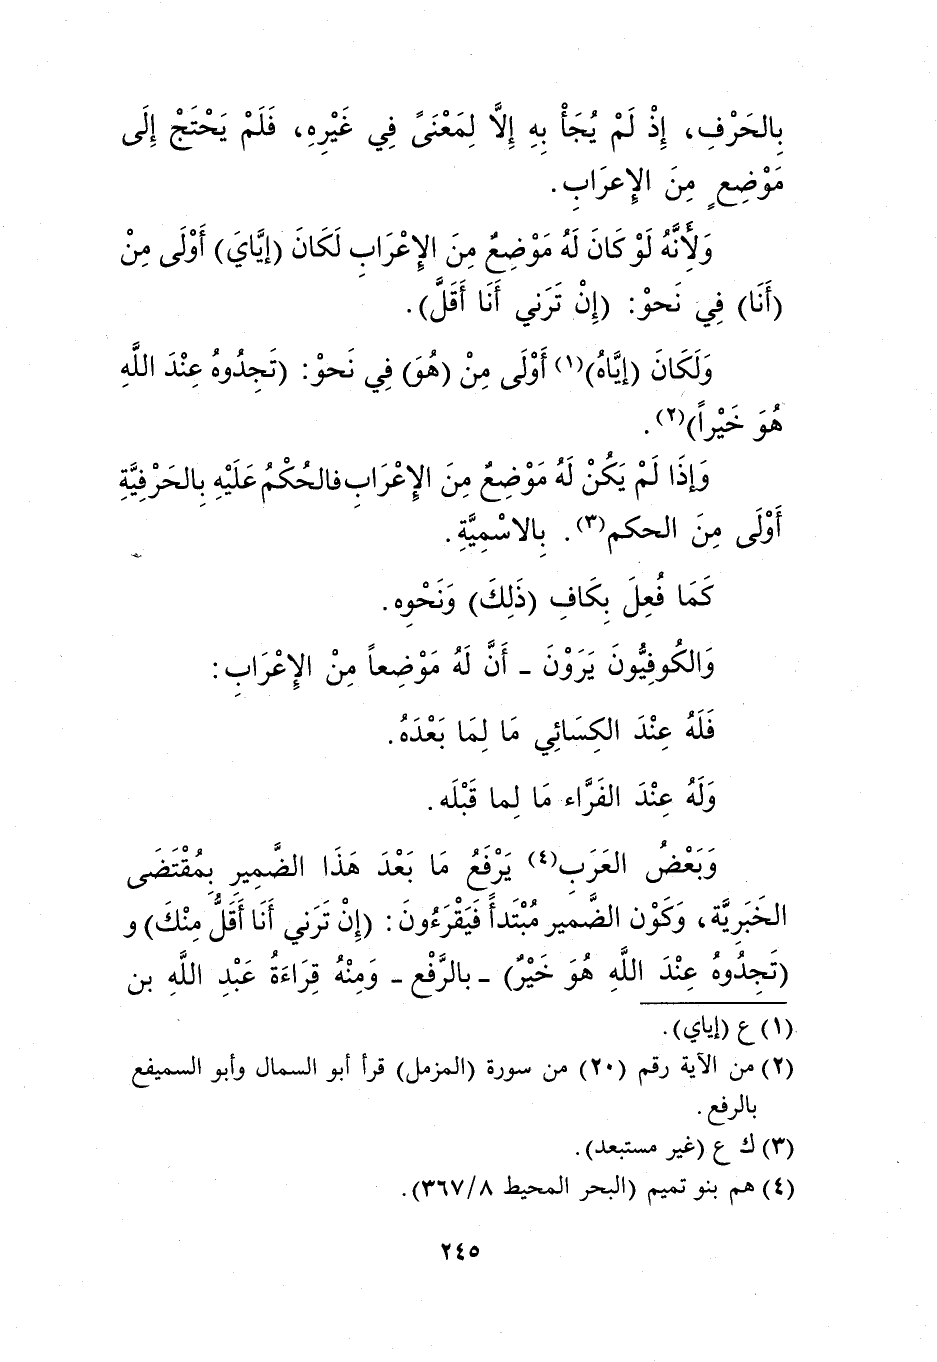 بِالحَرْفِ، إِذْ لَمْ يُجَأْ بِهِ إِلَّا لِمَعْنَىً فِي غَيْرِهِ، فَلَمْ يَحْتَجْ إِلَى
مَوْضِعٍ مِنَ الإِعرَابِ.
وَلِأَنَّهُ لَوْ كَانَ لَهُ مَوْضِعٌ مِنَ الإِعْرَابِ لَكَانَ (إيَّايَ) أَوْلَى مِنْ
(أَنَا) فِي نَحوْ: (إِنْ تَرَني أَنَا أَقَلَّ).
وَلَكَانَ (إيَّاهُ)(١) أَوْلَى مِنْ (هُوَ) فِي نَحوْ: (تَجِدُوهُ عِنْدَ اللَّهِ
هُوَ خَيْراً)(٢).
وَإِذَا لَمْ يَكُنْ لَهُ مَوْضِعٌ مِنَ الإِعْرَابِ فالحُكْمُ عَلَيْهِ بِالحَرْفِيَّةِ
أَوْلَى مِنَ الحكم(٣). بِالاسْمِيَّةِ.
كَمَا فُعِلَ بِكَافِ (ذَلِكَ) وَنَحْوِه.
وَالكُوفِيُّونَ يَرَوْنَ - أَنَّ لَهُ مَوْضِعاً مِنْ الإِعْرَابِ:
فَلَهُ عِنْدَ الكِسَائِي مَا لِمَا بَعْدَهُ.
وَلَهُ عِنْدَ الفَرَّاء مَا لِما قَبْلَه.
وَبَعْضُ العَرَبِ(٤) يَرْفَعُ مَا بَعْدَ هَذَا الضَّمِيرِ بِمُقْتَضَى
الخَبَرِيَّة، وَكَوْن الضَّمير مُبْتَدأً فَيَقْرَءُونَ: (إِنْ تَرَني أَنَا أَقَلُّ مِنْكَ) و
(تَجِدُوهُ عِنْدَ اللَّهِ هُوَ خَيْرٌ) - بالرَّفْع - وَمِنْهُ قِرَاءَةُ عَبْدِ اللَّهِ بن
(١) ع (إياي).
(٢) من الآية رقم (٢٠) من سورة (المزمل) قرأ أبو السمال وأبو السميفع
بالرفع.
(٣) ك ع (غير مستبعد).
(٤) هم بنو تميم (البحر المحيط ٣٦٧/٨).
٢٤٥